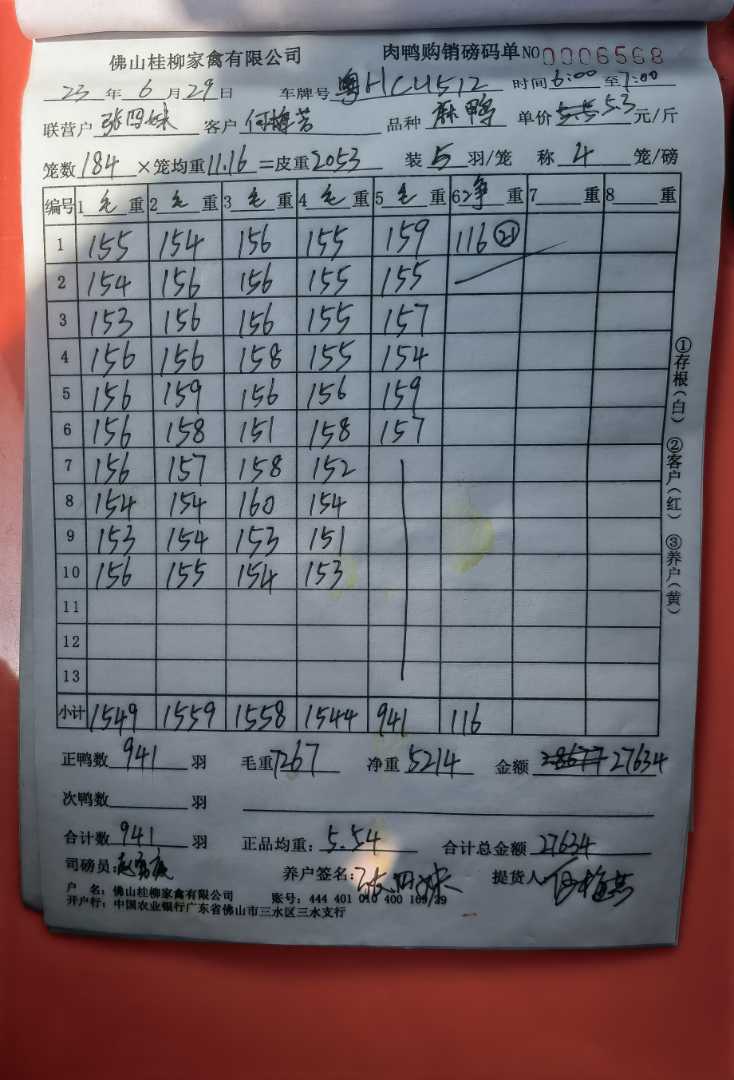 佛山桂柳家禽有限公司 肉鸭购销磅码单 NO 0006568
23 年 6 月 29 日 车牌号 粤HCU512 时间 6:00 至 7:00
联营户 张四妹 客户 何梅芳 品种 麻鸭 单价 5.3 元/斤
笼数 184 ×笼均重 11.16 =皮重 2053 装 5 羽/笼 称 4 笼/磅
编号 1 毛 重 2 毛 重 3 毛 重 4 毛 重 5 毛 重 6 净 重 7 重 8 重
1 155 154 156 155 159 116 ㉑
2 154 156 156 155 155
3 153 156 156 155 157
4 156 156 158 155 154
5 156 159 156 156 159
6 156 158 151 158 157
7 156 157 158 152
8 154 154 160 154
9 153 154 153 151
10 156 155 154 153
11
12
13
小计 1549 1559 1558 1544 941 116
①存根(白) ②客户(红) ③养户(黄)
正鸭数 941 羽 毛重 7267 净重 5214 金额 27634
次鸭数 羽
合计数 941 羽 正品均重: 5.54 合计总金额 27634
司磅员: 养户签名: 张四妹 提货人 何梅芳
户 名: 佛山桂柳家禽有限公司 账号: 444 401 010 400 169 39
开户行: 中国农业银行广东省佛山市三水区三水支行